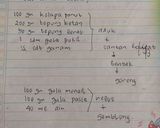 100 gr kelapa parut
200 gr tepung ketan
50 gr tepung beras
1 sdm gula putih
½ sdt garam
aduk
↓
santan
↓
bentuk
↓
goreng
100 gr gula merah
100 gr gula pasir
40 ml air
rebus
↓
gemblong